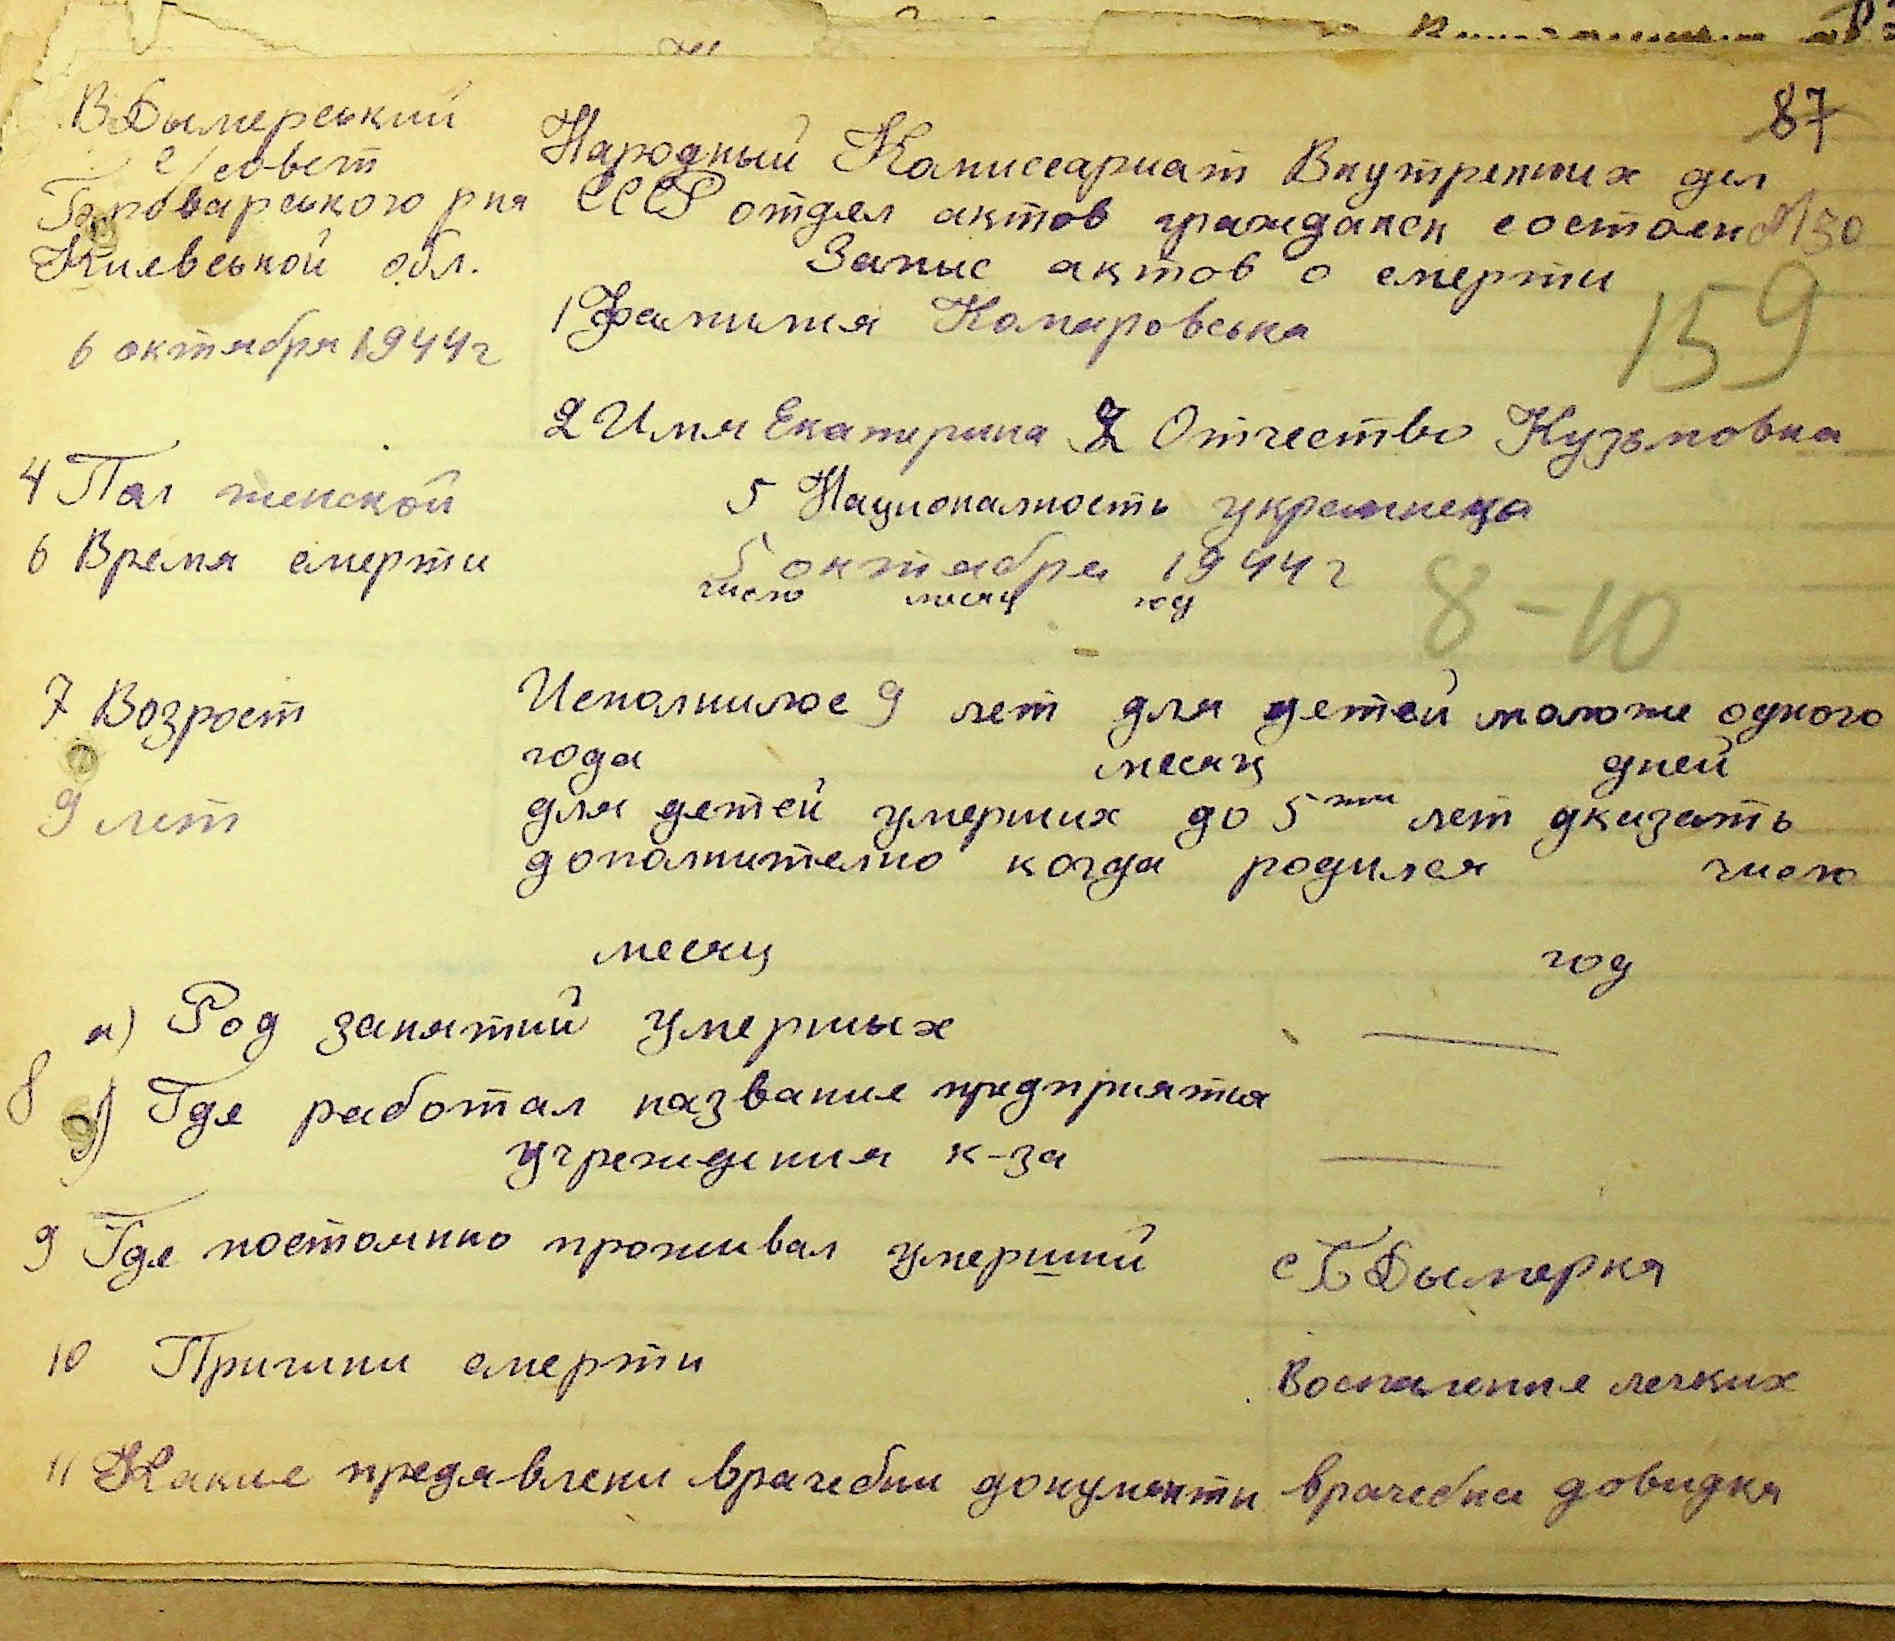 87
В Дымерський
с/совет
Броварського р-на
Киевськой обл.
6 октября 1944 г
Народный Комиссариат Внутренних дел
СССР отдел актов граждансн состоян №150
Запис актов о смерти
159
1 Фамилия Комаровська
2 Имя Екатерина 3 Отчество Кузьмовна
4 Пол женской 5 Националность украинеца
6 Время смерти 5 октября 1944 г
число месяц год
8-10
7 Возрост Исполнилос 9 лет для детей моложе одного
года месяц дней
9 лет для детей умерших до 5ти лет указать
дополнително когда родился число
месяц год
8 а) Род занятий умершых —
б) Где работал название предприятия
учреждения к-за —
9 Где постоянно проживал умерший с Б Дымерка
10 Причини смерти Воспаление легких
11 Какие предявлени врачебни документи врачебна довидка